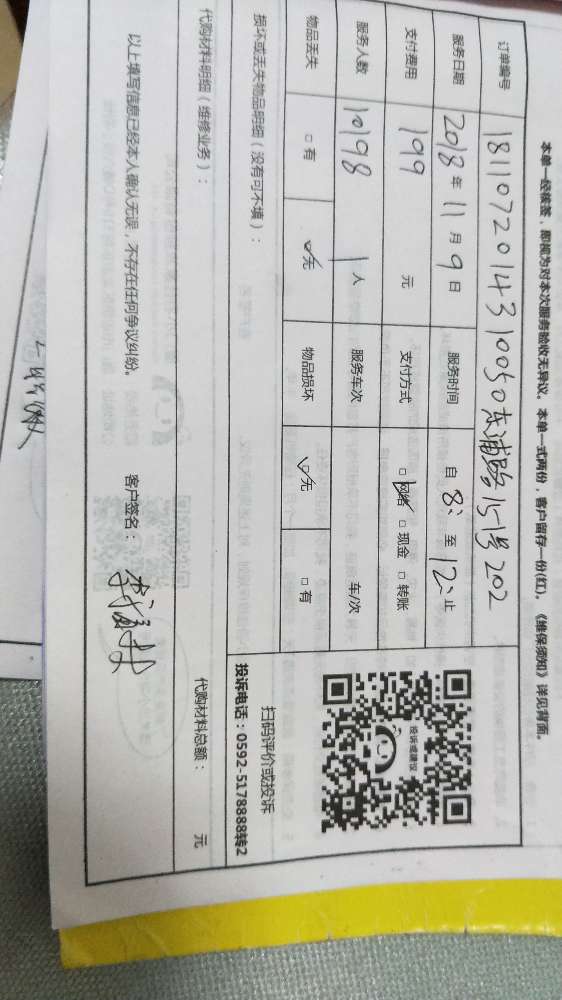 本单一经核签，即视为对本次服务验收无异议。本单一式两份，客户留存一份(红)。《维保须知》详见背面。
订单编号 18110720143 10050东浦路151号202
服务日期 2018年11月9日 服务时间 自8:至12:止
支付费用 199 元 支付方式 □网络 □现金 □转账
服务人数 10198 1人 服务车次 车/次
物品丢失 □有 □无 物品损坏 □无 □有
损坏或丢失物品明细（没有可不填）：
代购材料明细（维修业务）：
代购材料总额： 元
以上填写信息已经本人确认无误，不存在任何争议纠纷。 客户签名：
投诉或建议
扫码评价或投诉
投诉电话：0592-5178888转2